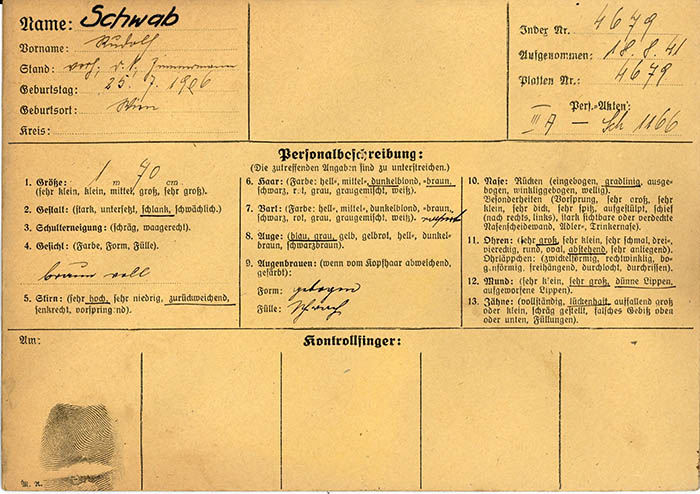 Name: Schwab
Vorname: Rudolf
Stand: verh.
Geburtstag: 25. 7. 1906
Geburtsort: Wien
Kreis:
Index Nr. 4679
Aufgenommen: 18. 8. 41
Platten Nr.: 4679
Pers.-Akten:
III A — Sch 1166
Personalbeschreibung:
(Die zutreffenden Angaben sind zu unterstreichen.)
1. Größe: 1 m 70 cm.
(sehr klein, klein, mittel, groß, sehr groß).
2. Gestalt: (stark, untersetzt, schlank, schwächlich).
3. Schulterneigung: (schräg, waagerecht).
4. Gesicht: (Farbe, Form, Fülle).
braun voll
5. Stirn: (sehr hoch, sehr niedrig, zurückweichend,
senkrecht, vorspringend).
6. Haar: (Farbe: hell-, mittel-, dunkelblond, -braun,
schwarz, rot, grau, graugemischt, weiß).
7. Bart: (Farbe: hell-, mittel-, dunkelblond, -braun,
schwarz, rot, grau, graugemischt, weiß).
8. Auge: (blau, grau, gelb, gelbrot, hell-, dunkel-
braun, schwarzbraun).
9. Augenbrauen: (wenn vom Kopfhaar abweichend,
gefärbt):
Form: gebogen
Fülle: schwach
10. Nase: Rücken (eingebogen, gradlinig, ausge-
bogen, winkliggebogen, wellig).
Besonderheiten (Vorsprung, sehr groß, sehr
klein, sehr dick, sehr spitz, aufgestülpt, schief
(nach rechts, links), stark sichtbare oder verdeckte
Nasenscheidewand, Adler-, Trinkernase).
11. Ohren: (sehr groß, sehr klein, sehr schmal, drei-
viereckig, rund, oval, abstehend, sehr anliegend).
Ohrläppchen: (zwickelförmig, rechtwinklig, bo-
g.nförmig, freihängend, durchlocht, durchrissen).
12. Mund: (sehr klein, sehr groß, dünne Lippen,
aufgeworfene Lippen).
13. Zähne: (vollständig, lückenhaft, auffallend groß
oder klein, schräg gestellt, falsches Gebiß oben
oder unten, Füllungen).
Am:
Kontrollfinger:
M. N.